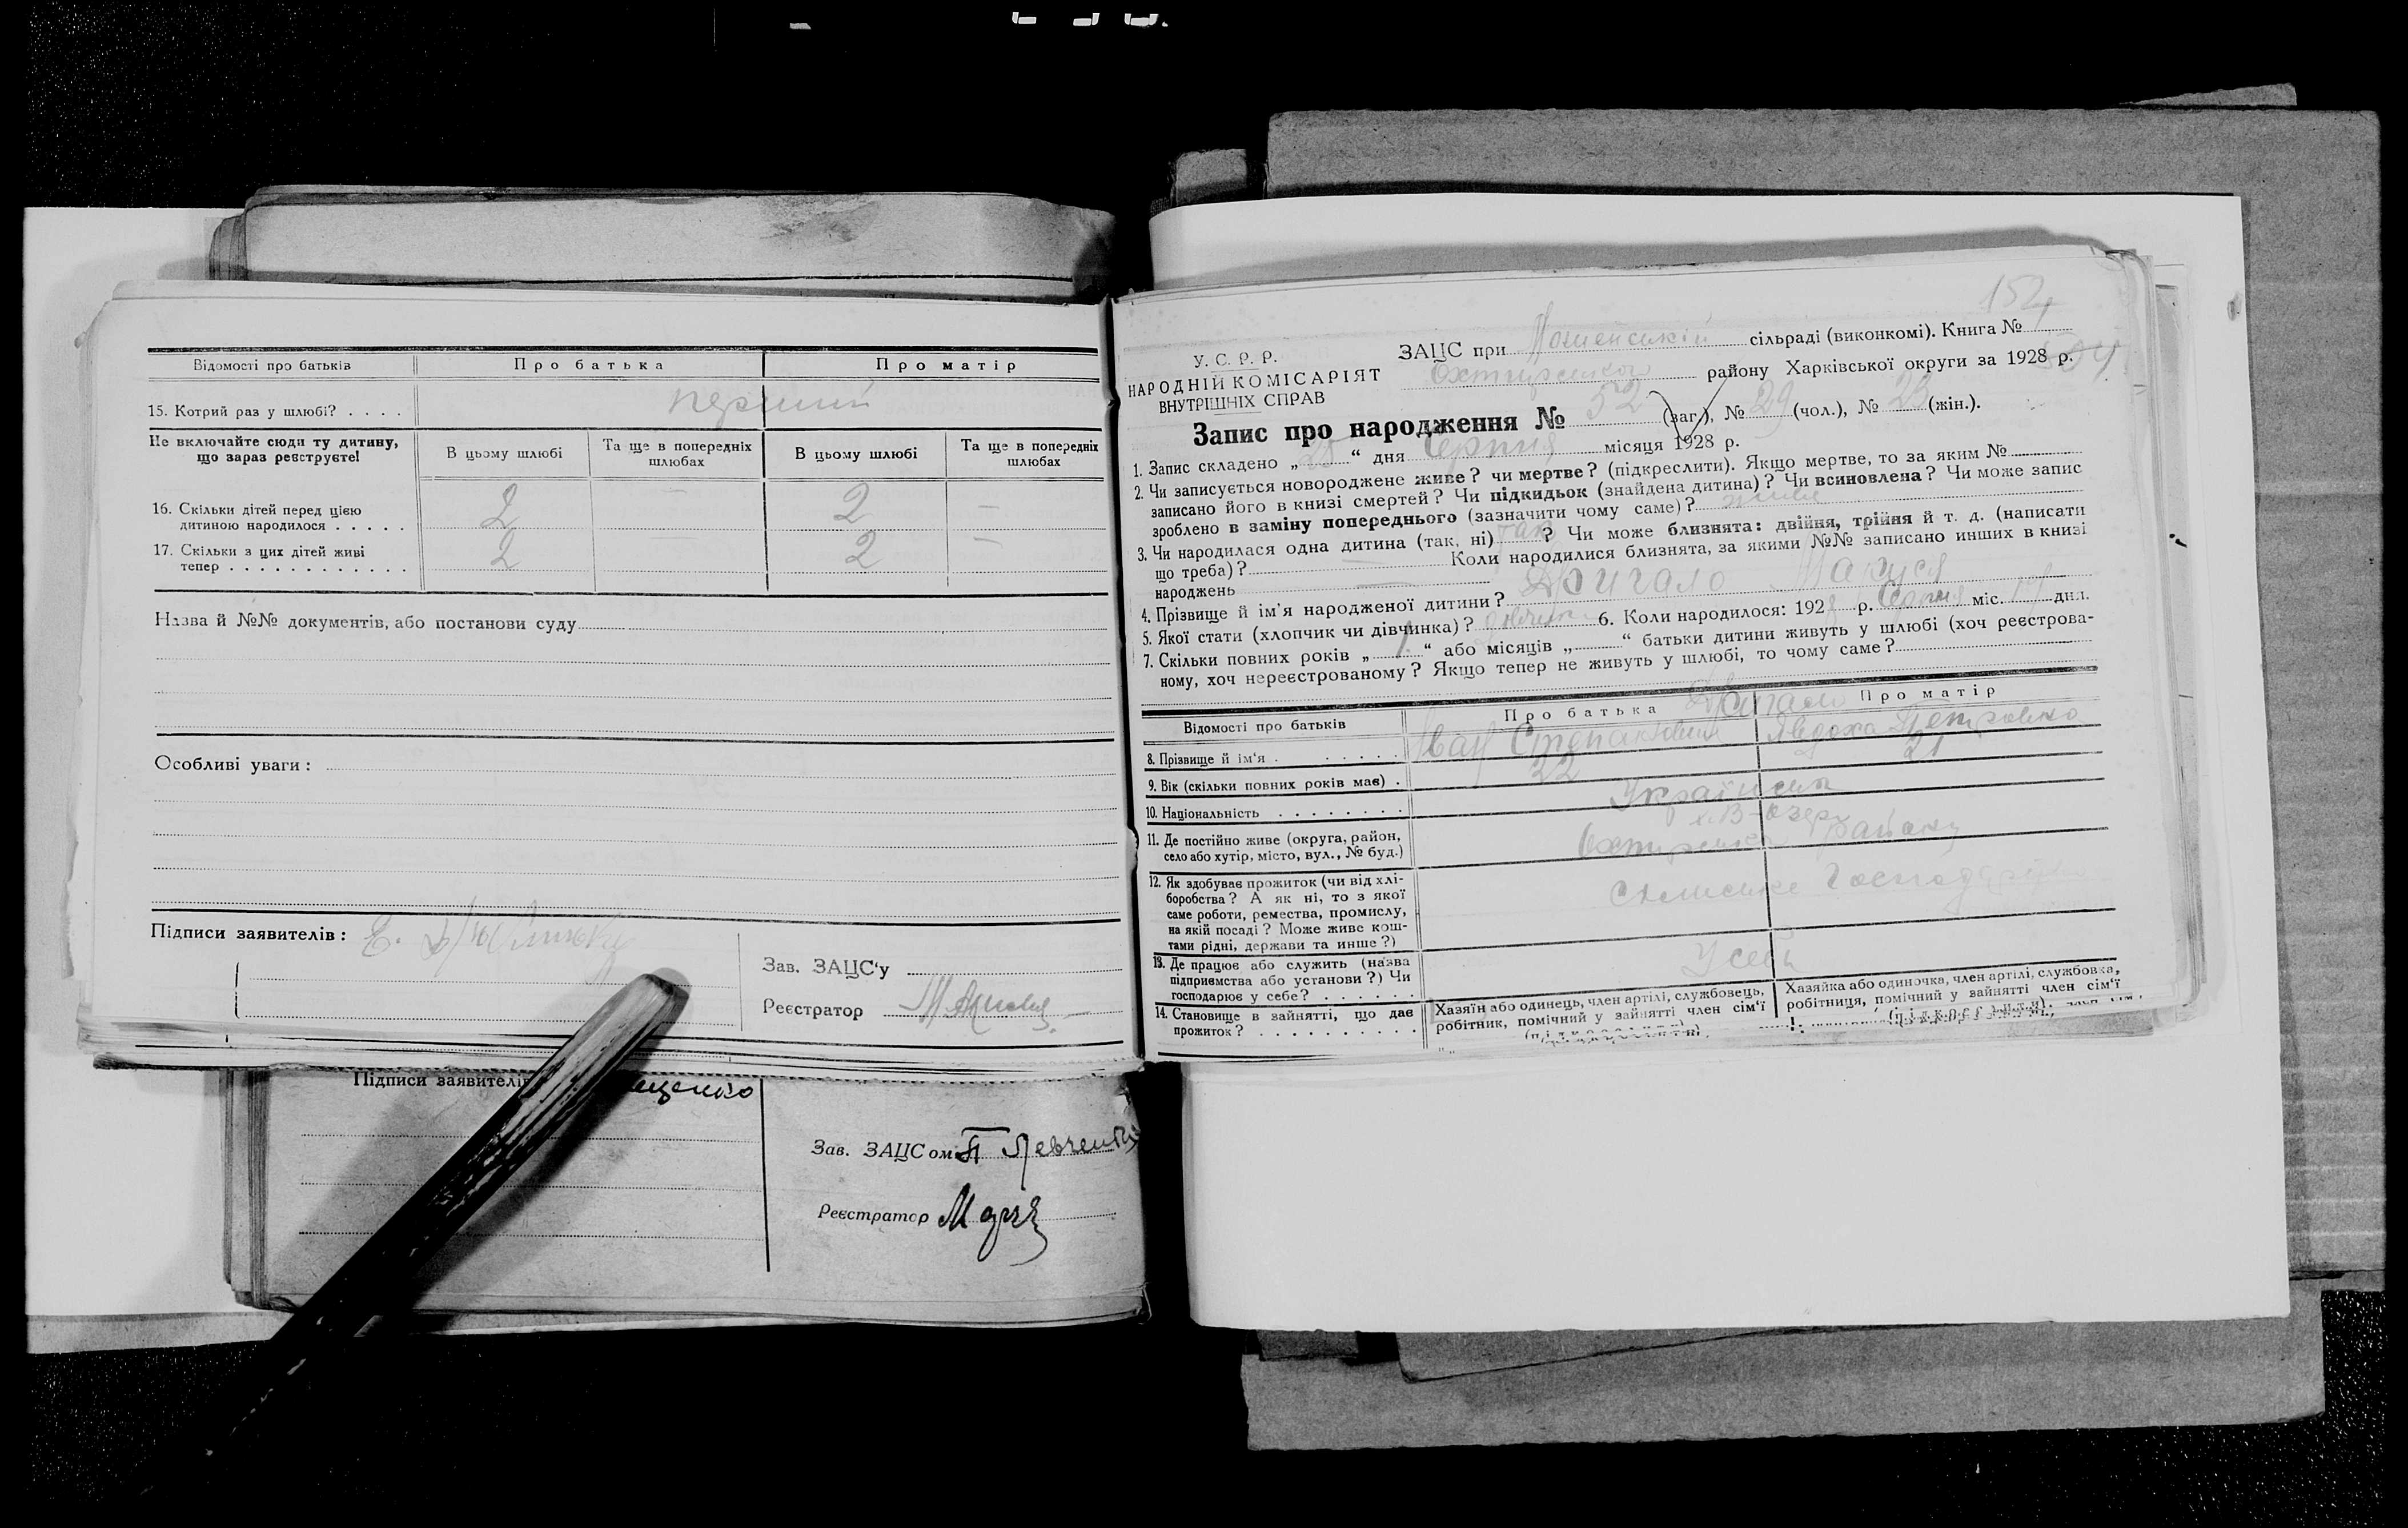 Відомості про батьків
Про батька
Про матір
15. Котрий раз у шлюбі? . . . .
перший
Не включайте сюди ту дитину,
що зараз реєструєте!
В цьому шлюбі
Та ще в попередніх
шлюбах
В цьому шлюбі
Та ще в попередніх
шлюбах
16. Скільки дітей перед цією
дитиною народилося . . . . .
2 — 2 —
17. Скільки з цих дітей живі
тепер . . . . . . . . . . . .
2 — 2 —
Назва й №№ документів, або постанови суду
Особливі уваги:
Підписи заявителів:
Зав. ЗАЦС'у
Реєстратор
Підписи заявителів
Зав. ЗАЦСом
Реєстратор
152
У. С. Р. Р.
НАРОДНІЙ КОМІСАРІЯТ
ВНУТРІШНІХ СПРАВ
ЗАЦС при сільраді (виконкомі). Книга №
району Харківської округи за 1928 р.
Запис про народження № 52 (заг.), № 29 (чол.), № 23 (жін.).
1. Запис складено „ “ дня Серпня місяця 1928 р.
2. Чи записується новороджене живе? чи мертве? (підкреслити). Якщо мертве, то за яким №
записано його в книзі смертей? Чи підкидьок (знайдена дитина)? Чи всиновлена? Чи може запис
зроблено в заміну попереднього (зазначити чому саме)? живе
3. Чи народилася одна дитина (так, ні) так? Чи може близнята: двійня, трійня й т. д. (написати
що треба)? — Коли народилися близнята, за якими №№ записано инших в книзі
народжень —
4. Прізвище й ім'я народженої дитини? Дригало Маруся
5. Якої стати (хлопчик чи дівчинка)? дівчинка 6. Коли народилося: 1928 р. Серпня міс. дня.
7. Скільки повних років „ “ або місяців „ “ батьки дитини живуть у шлюбі (хоч реєстрова-
ному, хоч нереєстрованому? Якщо тепер не живуть у шлюбі, то чому саме?
Відомості про батьків
Про батька
Дригало
Про матір
8. Прізвище й ім'я .
Іван Степанович
Явдоха Петровна
9. Вік (скільки повних років має) .
22
21
10. Національність . . . . . . . .
11. Де постійно живе (округа, район,
село або хутір, місто, вул., № буд.)
х. В-Озеро
району
12. Як здобуває прожиток (чи від хлі-
боробства? А як ні, то з якої
саме роботи, ремества, промислу,
на якій посаді? Може живе кош-
тами рідні, держави та инше?)
сільське Господарство
13. Де працює або служить (назва
підприємства або установи?) Чи
господарює у себе? . . . . . .
У себе
14. Становище в зайнятті, що дає
прожиток? . . . . . . . . . .
Хазяїн або одинець, член артілі, службовець,
робітник, помічний у зайнятті член сім'ї
(підкреслити).
Хазяйка або одиночка, член артілі, службовка,
робітниця, помічний у зайнятті член сім'ї
(підкреслити).